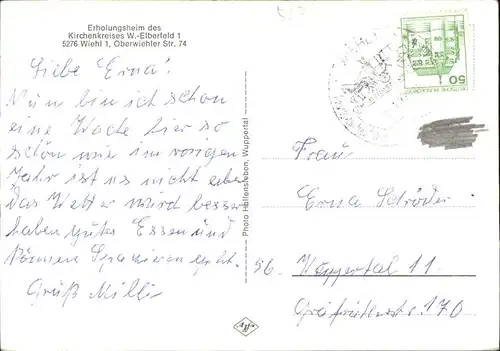 Erholungsheim des
Kirchenkreises W.-Elberfeld 1
5276 Wiehl 1, Oberwiehler Str. 74
Liebe Erna!
Nun bin ich schon
eine Woche hier so
schön wie im vorigen
Jahr ist es nicht aber
das Wetter wird besser
haben gutes Essen und
können Spazieren geht.
Gruß Milli
Photo Hallensleben, Wuppertal
50
Frau
Erna Schröder
56. Wuppertal 11.
str. 170